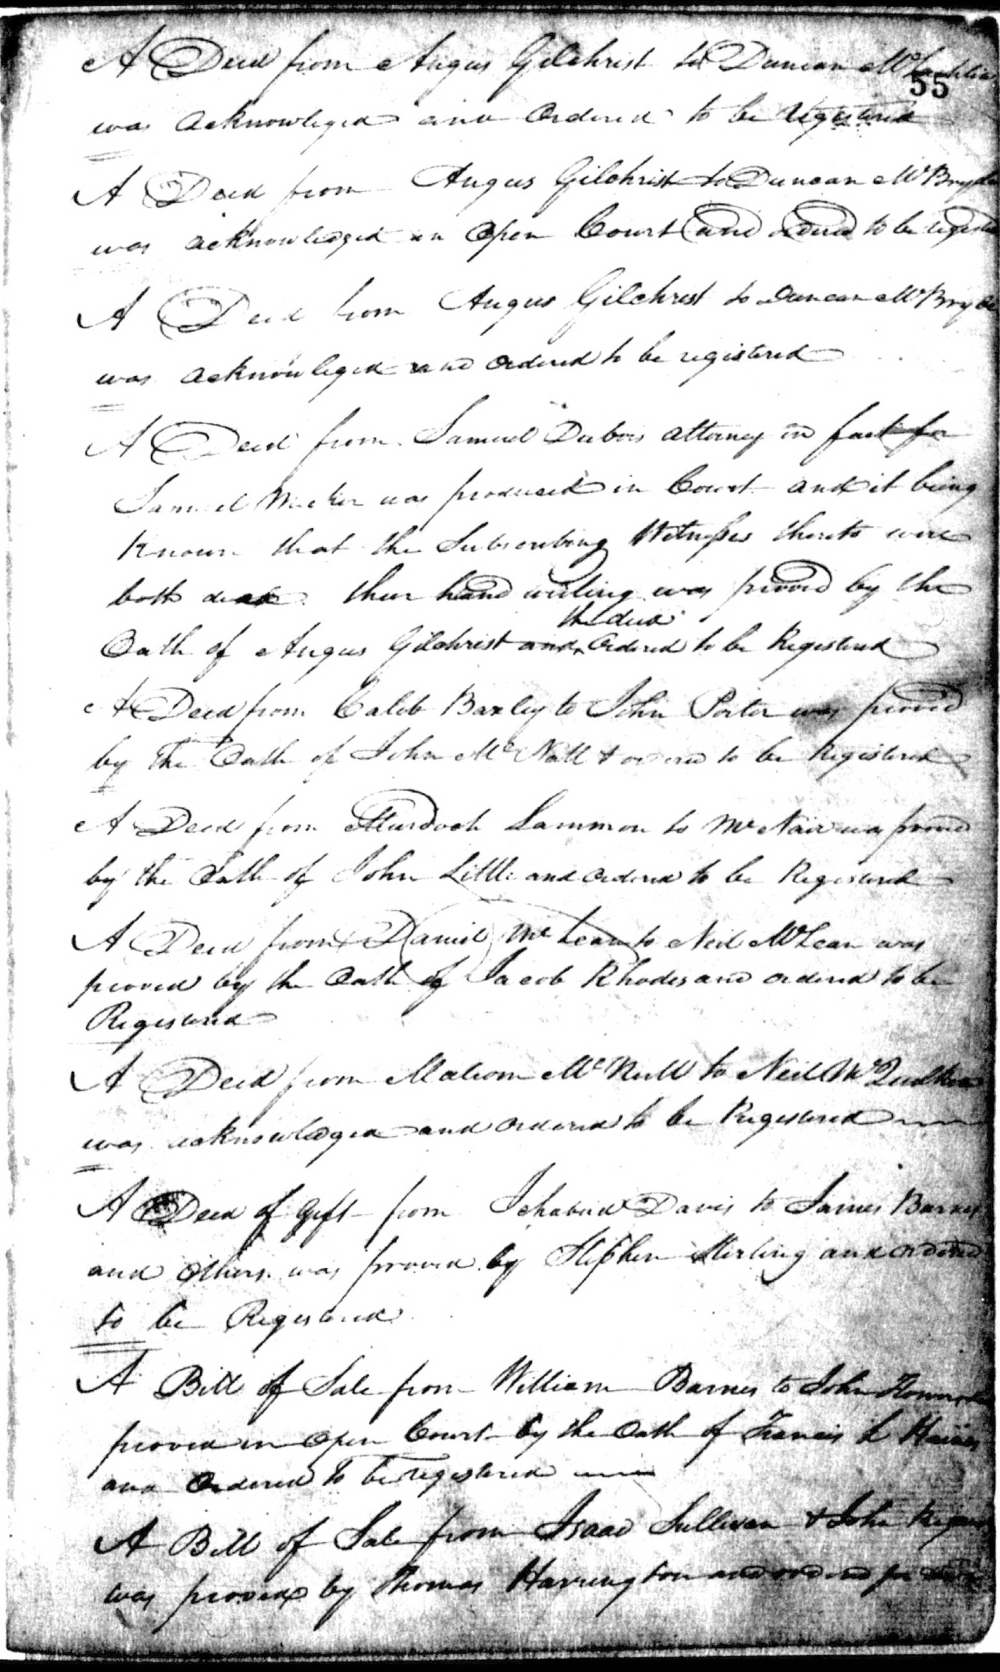 A Deed from Angus Gilchrist to Duncan McLachlin
55
was acknowleged and Ordered to be registered
A Deed from Angus Gilchrist to Duncan McBryde
was acknowledged in Open Court and ordered to be registered
A Deed from Angus Gilchrist to Duncan McBryde
was acknowleged and Ordered to be registered
A Deed from Samuel Dubois attorney in fact for
Samuel was produced in Court and it being
Known that the Subscribing Witnesses thereto were
both dead their hand writing was proved by the
the deed
Oath of Angus Gilchrist and Ordered to be Registered
A Deed from Caleb Baxley to John Porter was proved
by the Oath of John McNatt & ordered to be Registered
A Deed from Murdoch Lammon to McNair was proved
by the Oath of John Little and ordered to be Registered
A Deed from Daniel McLean to Neil McLean was
proved by the Oath of Jacob Rhodes and ordered to be
Registered
A Deed from Malcom McNeill to Neil
was acknowledged and ordered to be Registered
A Deed of Gift from Ichabud Davis to James Barnes
and others was proved by Stephen Sterling and ordered
to be Registered
A Bill of Sale from William Barnes to John
proved in Open Court by the Oath of Francis L
and Ordered to be registered
A Bill of Sale from Isaac Sullivan & John
was proved by Thomas Harrington and ordered